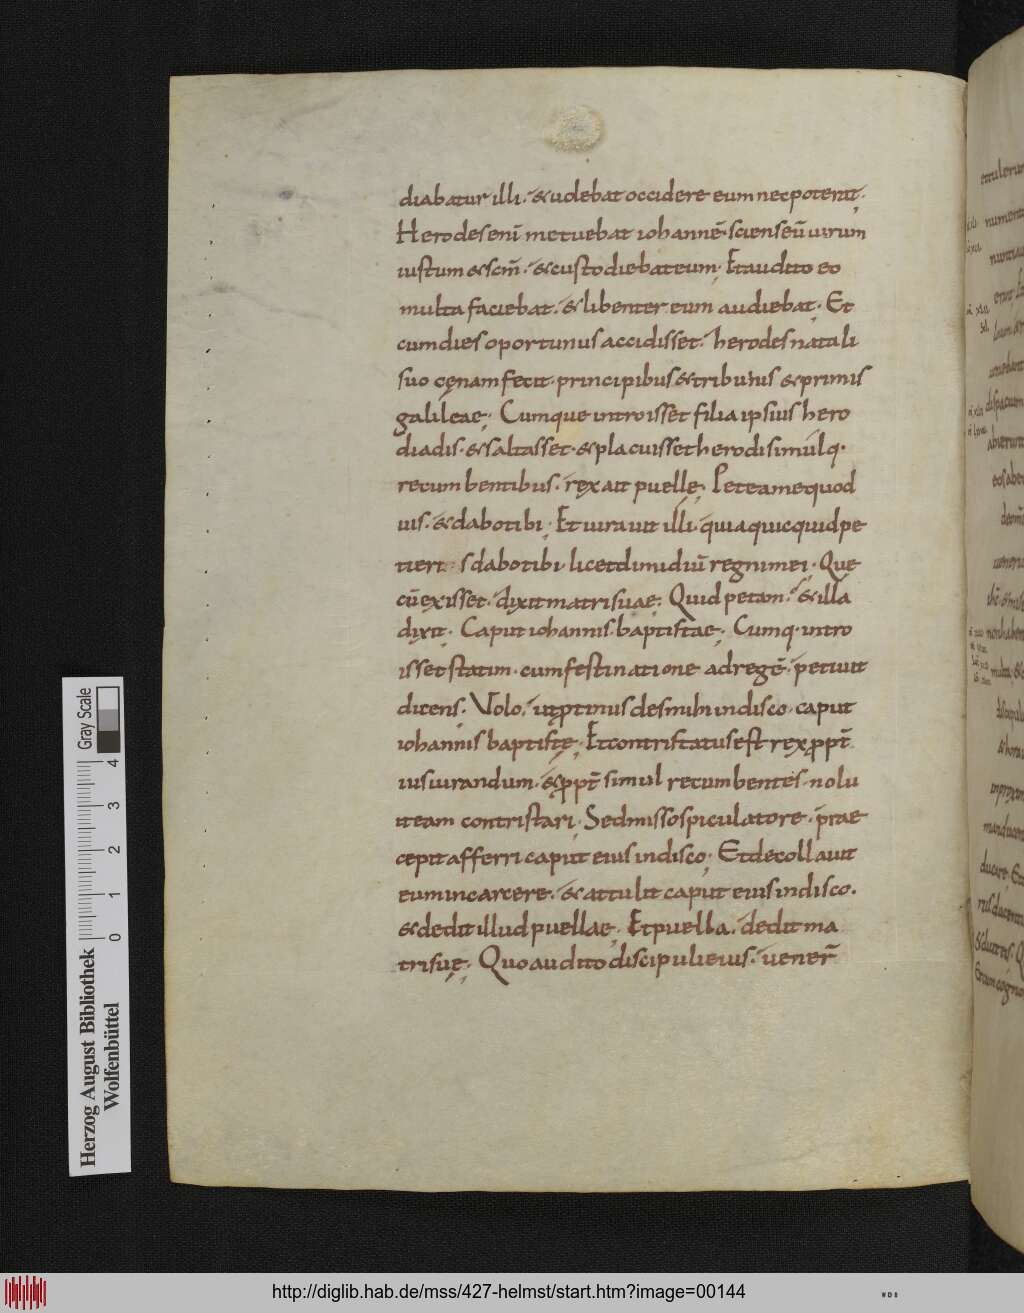 diabatur illi· & uolebat occidere eum nec poterat·
Herodes enī metuebat iohannē· sciens eū uirum
iustum & scm̄· & custodiebat eum· Et audito eo
multa faciebat· & libenter eum audiebat· Et
cum dies oportunus accidisset· herodes natali
suo cęnam fecit· principibus & tribunis & primis
galileae· Cumque introisset filia ipsius hero
diadis· & saltasset· & placuisset herodi simulq·
recumbentibus· rex ait puellę· Pete a me quod
uis· & dabo tibi· Et iurauit illi· quia quicquid pe
tieris dabo tibi· licet dimidiū regni mei· Que
cū exisset· dixit matri suae· Quid petam· & illa
dixit· Caput iohannis baptistae· Cumq· intro
isset statim· cum festinatione ad regē· petiuit
dicens· Volo· ut ptinus des mihi in disco· caput
iohannis baptistę· Et contristatus est rex ppt̄
iusiurandum· & ppt̄ simul recumbentes· nolu
it eam contristari· Sed misso spiculatore· prae
cepit afferri caput eius in disco· Et decollauit
eum in carcere· & attulit caput eius in disco·
& dedit illud puellae· Et puella· dedit ma
tri suę· Quo audito discipuli eius· uener̄
Herzog August Bibliothek
Wolfenbüttel
0 1 2 3 4
Gray Scale
http://diglib.hab.de/mss/427-helmst/start.htm?image=00144